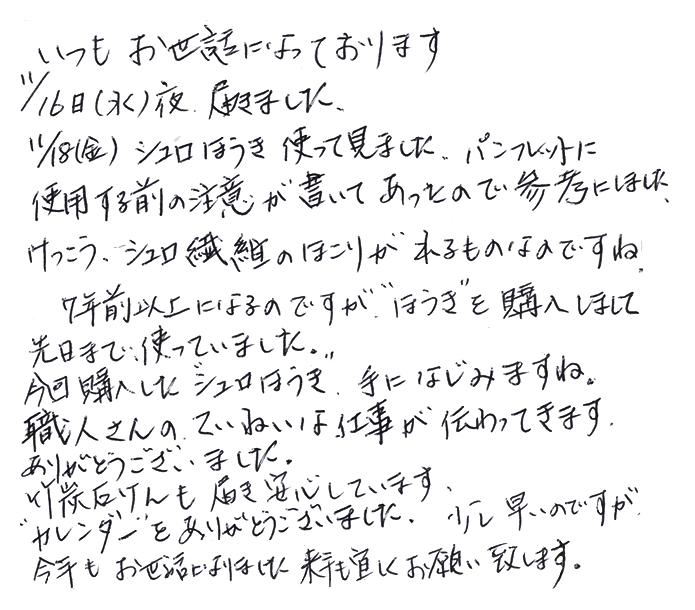 いつも お世話になっております
11/16日(水)夜、届きました、
11/18(金) シュロほうき 使って見ました、パンフレットに
使用する前の注意が書いてあったので参考にしました、
けっこう、シュロ繊維のほこりが れるものなのですね、
7年前以上になるのですが、"ほうき"を購入しまして
先日まで、使っていました。
今回購入した"シュロほうき"、手になじみますね。
職人さんの、ていねいな仕事が伝わってきます、
ありがとうございました。
竹炭石けんも 届き安心しています、
"カレンダー"をありがとうございました、少し早いのですが、
今年もお世話になりました 来年も宜しくお願い致します。